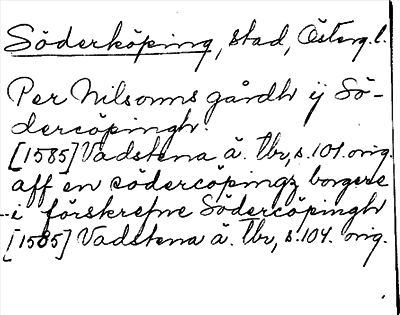 Söderköping, stad, Österg.l.
Per Nilsonns gårdh ij Sö-
dercöpingh.
[1585] Vadstena ä. Tbr, s. 101. orig.
aff en södercöpingz borgere
-i förskrefne Södercöpingh
[1585] Vadstena ä. Tbr, s. 104. orig.